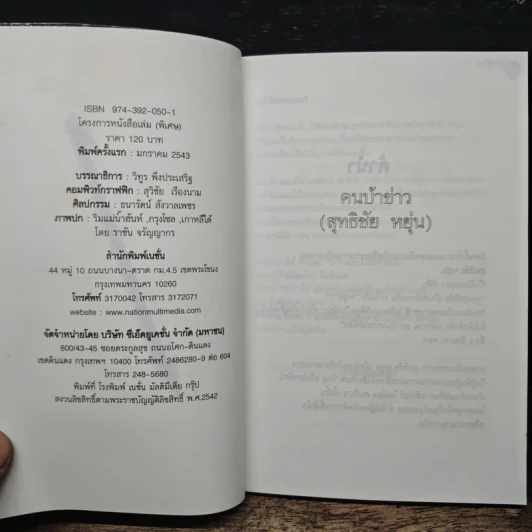 ISBN 974-392-050-1
โครงการหนังสือเล่ม (พิเศษ)
ราคา 120 บาท
พิมพ์ครั้งแรก : มกราคม 2543
บรรณาธิการ : วิทูร พึงประเสริฐ
คอมพิวท์กราฟฟิก : สุวิชัย เรืองนาม
ศิลปกรรม : ธนารัตน์ สังวาลเพชร
ภาพปก : ริมแม่น้ำฮันห์ ,กรุงโซล ,เกาหลีใต้
โดย ราชัน จรัญญากร
สำนักพิมพ์เนชั่น
44 หมู่ 10 ถนนบางนา-ตราด กม.4.5 เขตพระโขนง
กรุงเทพมหานคร 10260
โทรศัพท์ 3170042 โทรสาร 3172071
website : www.nationmultimedia.com
จัดจำหน่ายโดย บริษัท ซีเอ็ดยูเคชั่น จำกัด (มหาชน)
800/43-45 ซอยตระกูลสุข ถนนอโศก-ดินแดง
เขตดินแดง กรุงเทพฯ 10400 โทรศัพท์ 2486280-9 ต่อ 604
โทรสาร 248-5680
พิมพ์ที่ โรงพิมพ์ เนชั่น มัลติมีเดีย กรุ๊ป
สงวนลิขสิทธิ์ตามพระราชบัญญัติลิขสิทธิ์ พ.ศ.2542
คนบ้าข่าว
(สุทธิชัย หยุ่น)